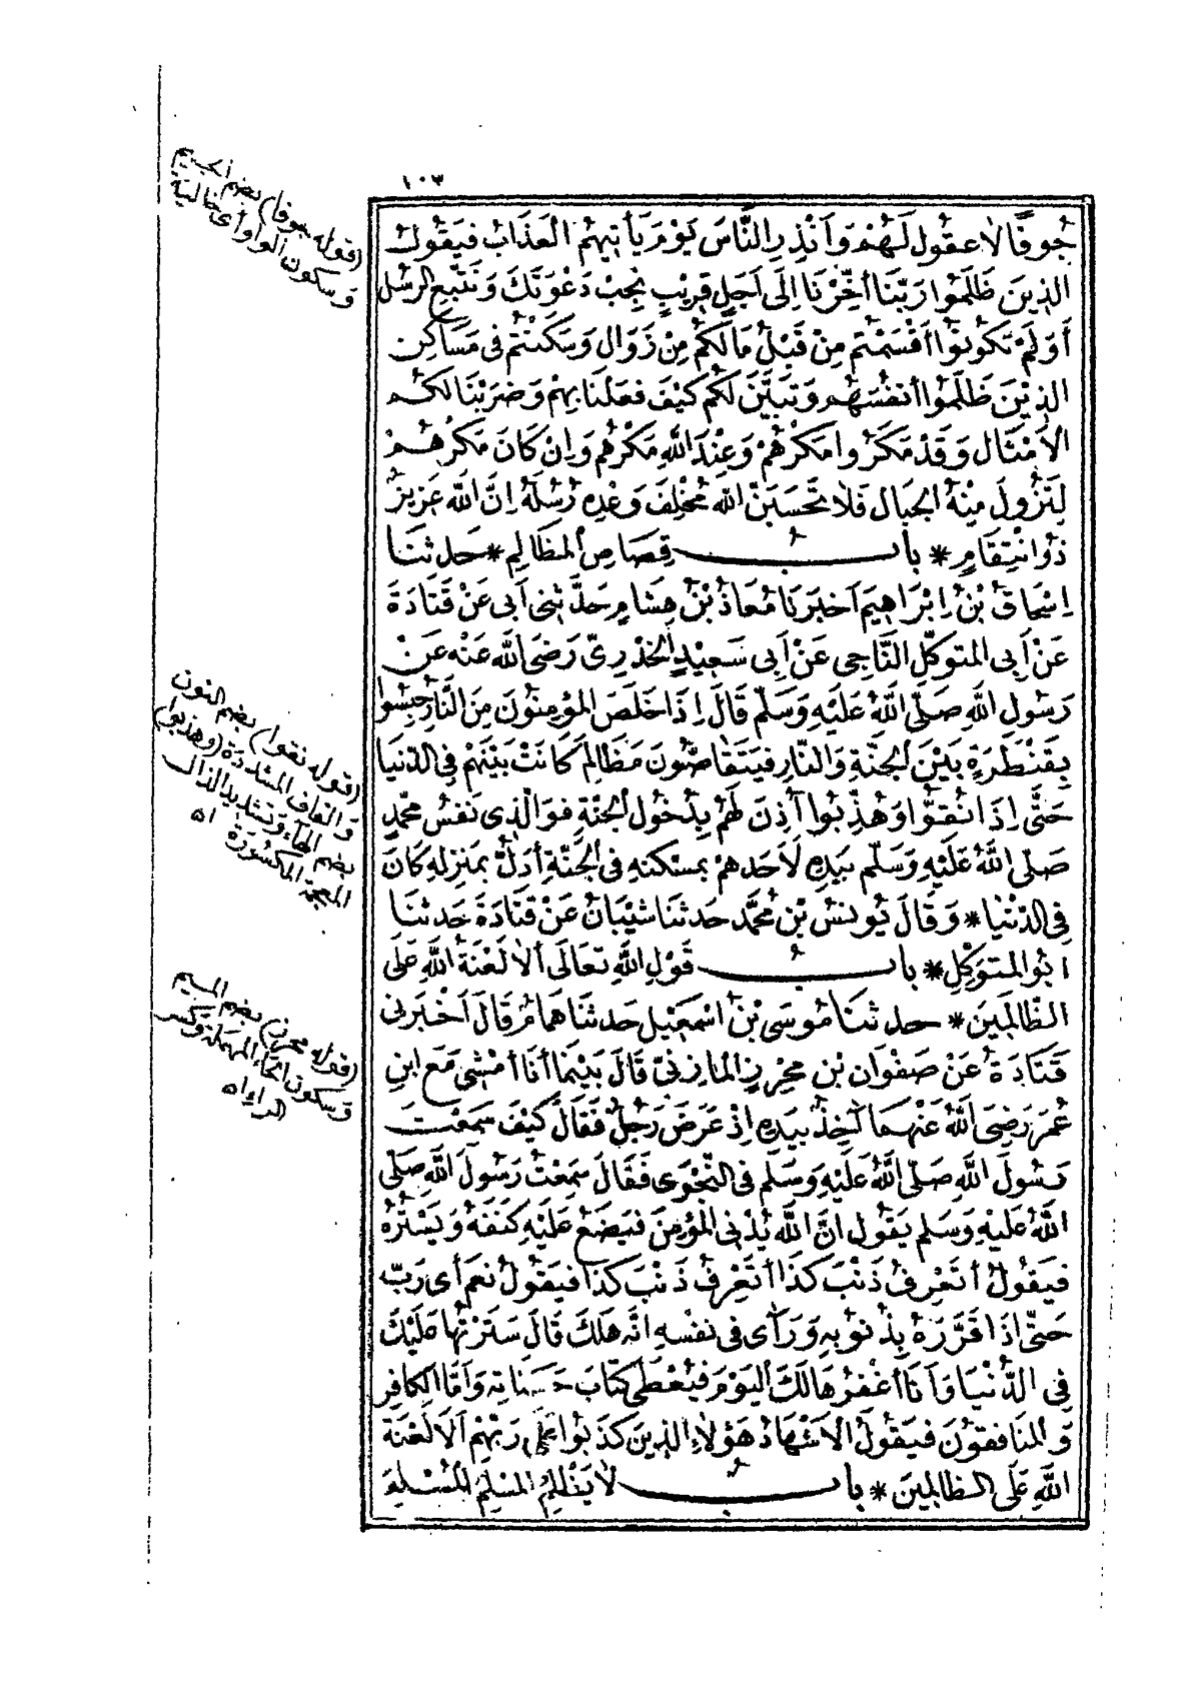 ١٠٣
جُوفًا لَا عُقُولَ لَهُمْ وَأَنْذِرِ النَّاسَ يَوْمَ يَأْتِيهِمُ الْعَذَابُ فَيَقُولُ
الذِينَ ظَلَمُوا رَبَّنَا أَخِّرْنَا إِلَى أَجَلٍ قَرِيبٍ نُجِبْ دَعْوَتَكَ وَنَتَّبِعِ الرُّسُلَ
أَوَلَمْ تَكُونُوا أَقْسَمْتُمْ مِنْ قَبْلُ مَا لَكُمْ مِنْ زَوَالٍ وَسَكَنْتُمْ فِي مَسَاكِنِ
الذِيْنَ ظَلَمُوا أَنْفُسَهُمْ وَتَبَيَّنَ لَكُمْ كَيْفَ فَعَلْنَا بِهِمْ وَضَرَبْنَا لَكُمُ
الأَمْثَالَ وَقَدْ مَكَرُوا مَكْرَهُمْ وَعِنْدَ اللهِ مَكْرُهُمْ وَإِنْ كَانَ مَكْرُهُمْ
لِتَزُولَ مِنْهُ الجِبَالُ فَلَا تَحْسَبَنَّ اللهَ مُخْلِفَ وَعْدِهِ رُسُلَهُ إِنَّ اللهَ عَزِيزٌ
ذُو انْتِقَامٍ * بابُ قِصَاصِ المَظَالِمِ * حَدثنَا
إِسْحَاقُ بْنُ إِبْرَاهِيمَ أَخبَرَنَا مُعَاذُ بْنُ هِشَامٍ حَدَّثَنِي أَبِي عَنْ قَتَادَةَ
عَنْ أَبِي المتوَكِّلِ النَّاجِي عَنْ أَبِي سَعِيْدٍ الخُدْرِيِّ رَضِيَ اللهُ عَنْه عَنْ
رَسُولِ اللهِ صَلَّى اللهُ عَلَيْهِ وَسَلَّمَ قَالَ إِذَا خَلَصَ المُؤْمِنُونَ مِنَ النَّارِ حُبِسُوا
بِقَنْطَرَةٍ بَيْنَ الجَنَّةِ وَالنَّارِ فَيَتَقَاصُّونَ مَظَالِمَ كَانَتْ بَيْنَهُمْ فِي الدُّنْيَا
حَتَّى إِذَا نُقُّوا وَهُذِّبُوا أُذِنَ لَهُمْ بِدُخُولِ الجَنَّةِ فَوَالَّذِي نَفْسُ مُحَمَّدٍ
صَلَّى اللهُ عَلَيْهِ وَسَلَّمَ بِيَدِهِ لَأَحَدُهُمْ بِمَسْكَنِهِ فِي الجَنَّةِ أَدَلُّ بِمَنْزِلِهِ كَانَ
فِي الدُّنْيَا * وَقَالَ يُونُسُ بْنُ مُحَمَّدٍ حَدثَنَا شَيْبَانُ عَنْ قَتَادَةَ حَدثنَا
أبُو المتوَكِّلِ * بابُ قَوْلِ اللهِ تَعَالَى أَلَا لَعْنَةُ اللهِ عَلَى
الظَّالِمِينَ * حدثنَا مُوسَى بْنُ اسْمَعِيْلَ حَدثنَا هَمَامٌ قَالَ أَخْبَرَنِي
قَتَادَةُ عَنْ صَفْوَانَ بْنِ مُحْرِزٍ المَازِنِيِّ قَالَ بَيْنَمَا أَنَا أَمْشِي مَعَ ابْنِ
عُمَرَ رَضِيَ اللهُ عَنْهُمَا آخِذٌ بِيَدِهِ إِذْ عَرَضَ رَجُلٌ فَقَالَ كَيْفَ سَمِعْتَ
رَسُولَ اللهِ صَلَّى اللهُ عَلَيْهِ وَسَلَّمَ فِي النَّجْوَى فَقَالَ سَمِعْتُ رَسُولَ اللهِ صَلَّى
اللهُ عَلَيْهِ وَسَلَمَ يَقُولُ إنَّ اللهَ يُدْنِي المُؤْمِنَ فَيَضَعُ عَلَيْهِ كَنَفَهُ وَيَسْتُرُهُ
فَيَقُولُ أَتَعْرِفُ ذَنْبَ كَذَا أَتَعْرِفُ ذَنْبَ كَذَا فَيَقُولُ نَعَمْ أَي رَبِّ
حَتَّى إِذَا قَرَّرَهُ بِذُنُوبِهِ وَرَأَى فِي نَفْسِهِ انَّه هَلَكَ قَالَ سَتَرْتُهَا عَلَيْكَ
فِي الدُّنْيَا وَأَنَا أَغْفِرُهَا لَكَ الْيَوْمَ فَيُعْطَى كِتَابَ حَسَنَاتِهِ وَأَمَّا الكَافِرُ
وَالمنَافِقُونَ فَيَقُولُ الأَشْهَادُ هَؤُلَاءِ الذِينَ كَذَبُوا عَلَى رَبِّهِمْ أَلَا لَعْنَةُ
اللهِ عَلَى الظالِمِينَ * بابُ لَا يَظْلِمُ المُسْلِمُ المُسْلِمَ
(قوله جوفا) بضم الجيم
وسكون الواو أي خالية
(قوله نقوا) بضم النون
والقاف المشددة (وهذبوا)
بضم الهاء وتشديد الذال
المعجمة المكسورة اه
(قوله محرز) بضم الميم
وسكون الحاء المهملة وكسر
الراء اه